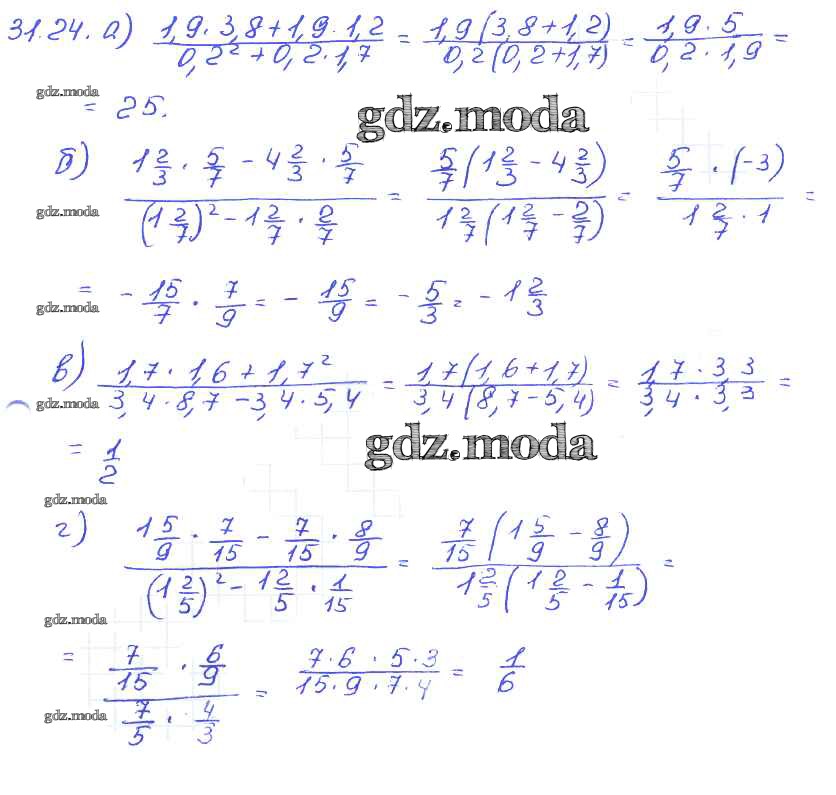 31.24. а) (1,9 · 3,8 + 1,9 · 1,2)/(0,2² + 0,2 · 1,7) = (1,9(3,8 + 1,2))/(0,2(0,2 + 1,7)) = (1,9 · 5)/(0,2 · 1,9) =
gdz.moda
= 25.
gdz.moda
б) (1 2/3 · 5/7 - 4 2/3 · 5/7)/((1 2/7)² - 1 2/7 · 2/7) = (5/7(1 2/3 - 4 2/3))/(1 2/7(1 2/7 - 2/7)) = (5/7 · (-3))/(1 2/7 · 1) =
gdz.moda
= - 15/7 · 7/9 = - 15/9 = - 5/3 = - 1 2/3
gdz.moda
в) (1,7 · 1,6 + 1,7²)/(3,4 · 8,7 - 3,4 · 5,4) = (1,7(1,6 + 1,7))/(3,4(8,7 - 5,4)) = (1,7 · 3,3)/(3,4 · 3,3) =
gdz.moda
= 1/2
gdz.moda
gdz.moda
г) (1 5/9 · 7/15 - 7/15 · 8/9)/((1 2/5)² - 1 2/5 · 1/15) = (7/15(1 5/9 - 8/9))/(1 2/5(1 2/5 - 1/15)) =
gdz.moda
= (7/15 · 6/9)/(7/5 · 4/3) = (7 · 6 · 5 · 3)/(15 · 9 · 7 · 4) = 1/6
gdz.moda